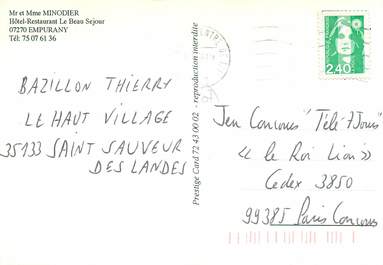 Mr et Mme MINODIER
Hôtel-Restaurant Le Beau Sejour
07270 EMPURANY
Tél: 75 07 61 36
BAZILLON THIERRY
LE HAUT VILLAGE
35133 SAINT SAUVEUR
DES LANDES
Prestige Card 72 43 00 02 - reproduction interdite
2,40
Jeu Concours "Télé 7 Jours"
"Le Roi Lion"
Cedex 3850
99385 Paris Concours